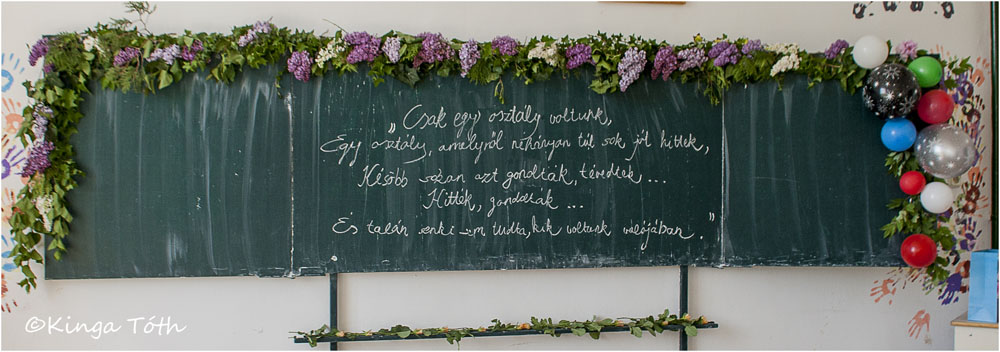 „Csak egy osztály voltunk,
Egy osztály, amelyről néhányan túl sok jót hittek,
Később sokan azt gondolták, tévedtek...
Hitték, gondolták ...
És talán senki sem tudta, kik voltunk valójában."
©Kinga Tóth